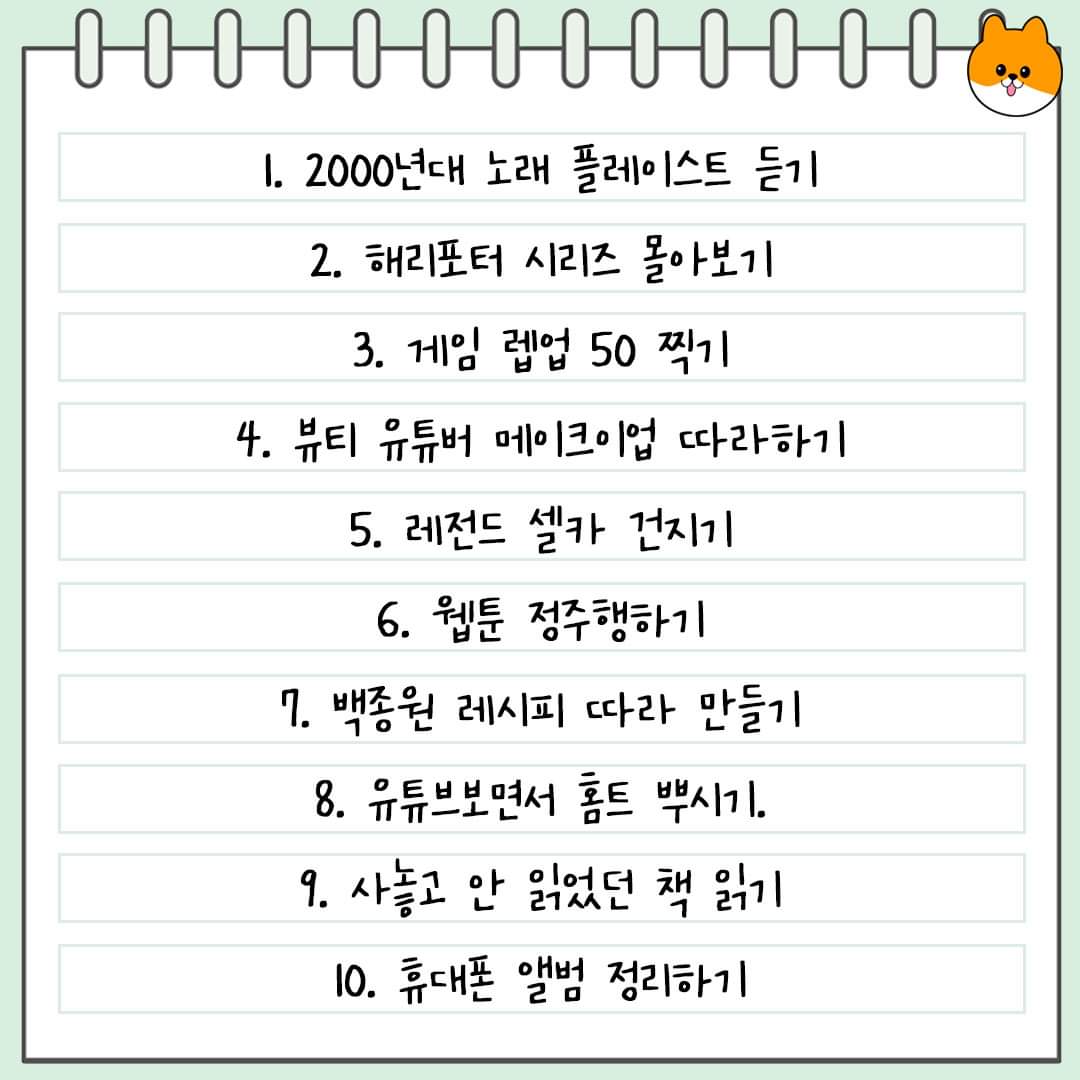 1. 2000년대 노래 플레이스트 듣기
2. 해리포터 시리즈 몰아보기
3. 게임 렙업 50 찍기
4. 뷰티 유튜버 메이크이업 따라하기
5. 레전드 셀카 건지기
6. 웹툰 정주행하기
7. 백종원 레시피 따라 만들기
8. 유튜브보면서 홈트 뿌시기.
9. 사놓고 안 읽었던 책 읽기
10. 휴대폰 앨범 정리하기